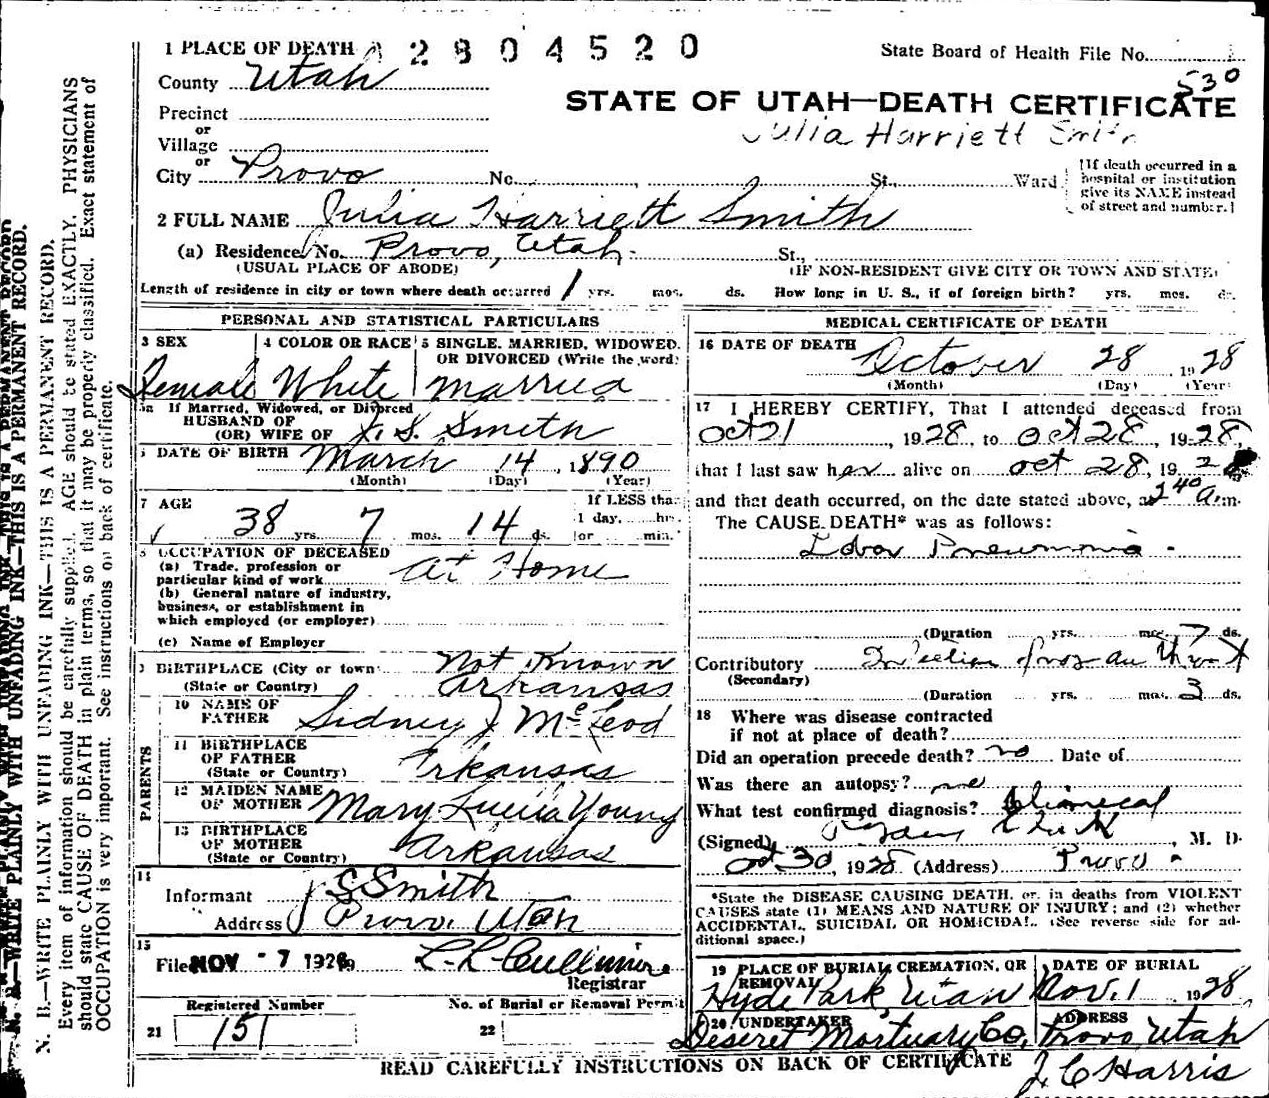 1 PLACE OF DEATH 2 8 0 4 5 2 0 State Board of Health File No.
County Utah 530
STATE OF UTAH—DEATH CERTIFICATE
Precinct
or
Village
Julia Harriett Smith
or
City Provo No. , St., Ward
[If death occurred in a hospital or institution give its NAME instead of street and number.]
2 FULL NAME Julia Harriett Smith
(a) Residence, No. Provo, Utah. St.,
(USUAL PLACE OF ABODE) (IF NON-RESIDENT GIVE CITY OR TOWN AND STATE)
Length of residence in city or town where death occurred 1 yrs. mos. ds. How long in U. S., if of foreign birth? yrs. mos. ds.
PERSONAL AND STATISTICAL PARTICULARS
3 SEX 4 COLOR OR RACE 5 SINGLE, MARRIED, WIDOWED,
OR DIVORCED (Write the word)
Female White Married
5a If Married, Widowed, or Divorced
HUSBAND OF
(OR) WIFE OF J. S. Smith
6 DATE OF BIRTH March 14, 1890
(Month) (Day) (Year)
7 AGE If LESS than
1 day, hrs.
38 yrs. 7 mos. 14 ds. or min.
8 OCCUPATION OF DECEASED
(a) Trade, profession or
particular kind of work At Home
(b) General nature of industry,
business, or establishment in
which employed (or employer)
(c) Name of Employer
9 BIRTHPLACE (City or town) Not Known
(State or Country) Arkansas
PARENTS
10 NAME OF
FATHER Sidney J McLeod
11 BIRTHPLACE
OF FATHER
(State or Country) Arkansas
12 MAIDEN NAME
OF MOTHER Mary Lucia Young
13 BIRTHPLACE
OF MOTHER
(State or Country) Arkansas
14
Informant J S Smith
Address Provo, Utah
15
Filed NOV -7 1928 L. L. Cullimore
Registrar
Registered Number No. of Burial or Removal Permit
21 151 22
MEDICAL CERTIFICATE OF DEATH
16 DATE OF DEATH
October 28, 1928
(Month) (Day) (Year)
17 I HEREBY CERTIFY, That I attended deceased from
Oct 21, 1928, to Oct 28, 1928,
that I last saw her alive on Oct 28, 192
and that death occurred, on the date stated above, at 2 40 a.m.
The CAUSE DEATH* was as follows:
Lobar Pneumonia.
(Duration yrs. mos. 7 ds.
Contributory Infection from
(Secondary)
(Duration yrs. mos. 3 ds.
18 Where was disease contracted
if not at place of death?
Did an operation precede death? no Date of
Was there an autopsy? no
What test confirmed diagnosis? Clinical
(Signed) , M. D.
Oct. 30, 1928 (Address) Provo
*State the DISEASE CAUSING DEATH, or, in deaths from VIOLENT
CAUSES state (1) MEANS AND NATURE OF INJURY; and (2) whether
ACCIDENTAL, SUICIDAL OR HOMICIDAL. (See reverse side for ad-
ditional space.)
19 PLACE OF BURIAL, CREMATION, OR REMOVAL DATE OF BURIAL
Hyde Park, Utah Nov. 1 1928
20 UNDERTAKER ADDRESS
Deseret Mortuary Co. Provo Utah
READ CAREFULLY INSTRUCTIONS ON BACK OF CERTIFICATE J. C. Harris
N. B.—WRITE PLAINLY WITH UNFADING INK—THIS IS A PERMANENT RECORD.
N. B.—WRITE PLAINLY WITH UNFADING INK—THIS IS A PERMANENT RECORD.
Every item of information should be carefully supplied. AGE should be stated EXACTLY. PHYSICIANS
should state CAUSE OF DEATH in plain terms, so that it may be properly classified. Exact statement of
OCCUPATION is very important. See instructions on back of certificate.